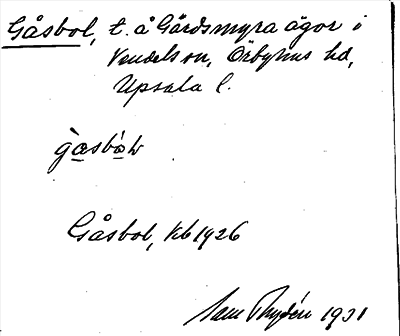 Gåsbol, t. å Gårdsmyra ägor i
Vendels sn, Örbyhus hd,
Upsala l.
gàsbóɯ
Gåsbol, kb 1726
Sam Rydén 1931